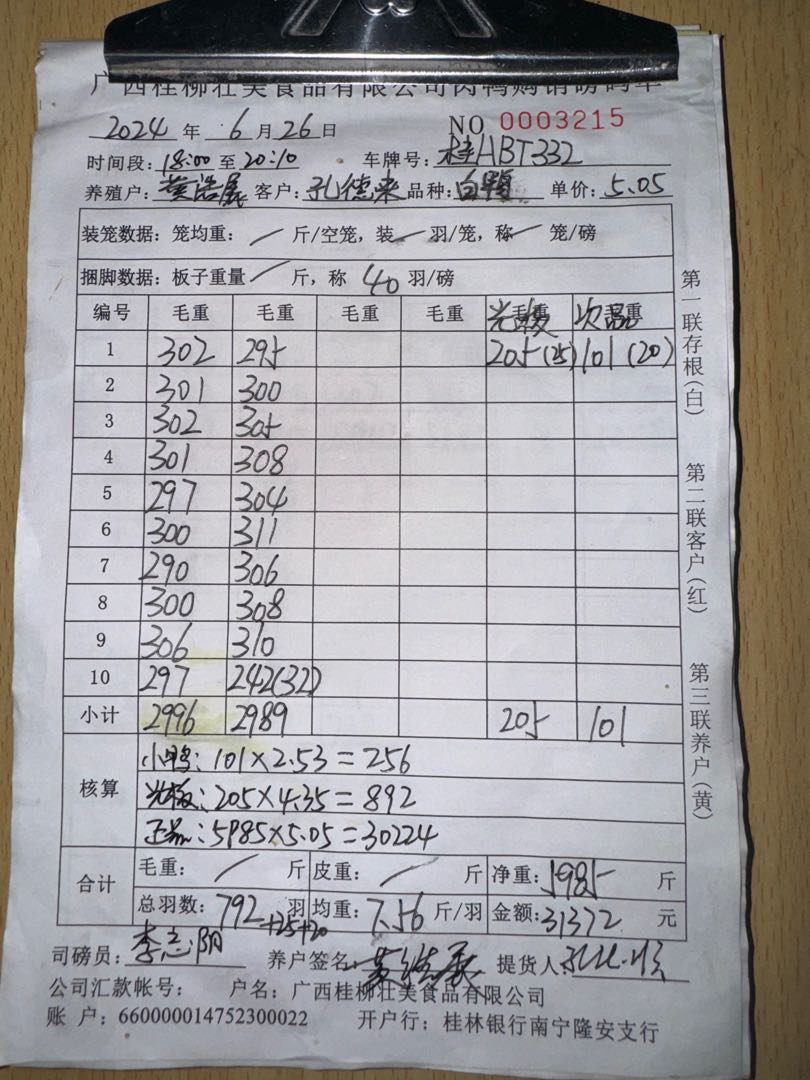 广西桂柳壮美食品有限公司肉鸭购销磅码单
2024 年 6 月 26 日 NO 0003215
时间段: 18:00 至 20:10 车牌号: 桂HBT332
养殖户: 黄浩展 客户: 孔德来 品种: 白鸭 单价: 5.05
装笼数据: 笼均重: / 斤/空笼, 装 / 羽/笼, 称 / 笼/磅
捆脚数据: 板子重量 / 斤, 称 40 羽/磅
编号 毛重 毛重 毛重 毛重 毛重 光板 毛重 次品
1 302 295 205(25) 101(20)
2 301 300
3 302 305
4 301 308
5 297 304
6 300 311
7 290 306
8 300 308
9 306 310
10 297 242(32)
小计 2996 2989 205 101
核算
小鸭: 101×2.53=256
光板: 205×4.35=892
正品: 5985×5.05=30224
合计
毛重: / 斤 皮重: / 斤 净重: 5985 斤
总羽数: 792 +25+20 羽 均重: 7.56 斤/羽 金额: 31372 元
司磅员: 李志阴 养户签名 提货人:
公司汇款帐号: 户名: 广西桂柳壮美食品有限公司
账 户: 660000014752300022 开户行: 桂林银行南宁隆安支行
第一联存根(白)
第二联客户(红)
第三联养户(黄)